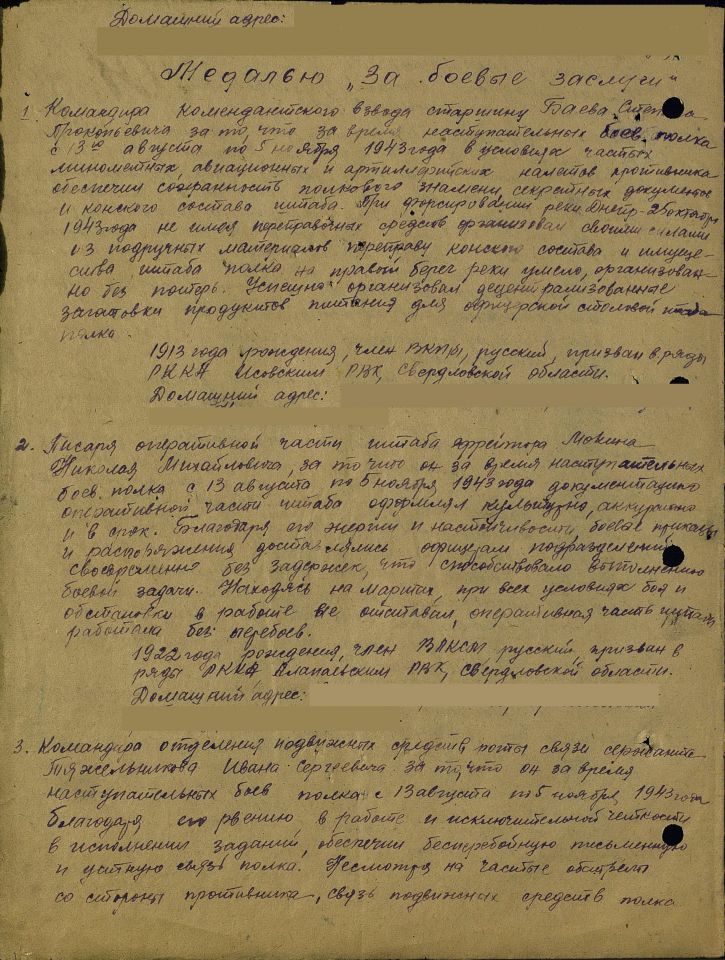 Домашний адрес:
Медалью „За боевые заслуги"
1. Командира комендантского взвода старшину Баева Степана
Прокопьевича за то, что за время наступательных боев полка
с 13го августа по 5 ноября 1943 года в условиях частых
минометных, авиационных и артиллерийских налетов противника
обеспечил сохранность полкового знамени, секретных документов
и конского состава штаба. При форсировании реки Днепр - 25 октября
1943 года не имея переправочных средств организовал своими силами
из подручных материалов переправу конского состава и имуще-
ства, штаба полка на правый берег реки умело, организован-
но без потерь. Успешно организовал децентрализованные
заготовки продуктов питания для офицерской столовой штаба
полка.
1913 года рождения, член ВКП/б/, русский, призван в ряды
РККА Исовским РВК, Свердловской области.
Домашний адрес:
2. Писаря оперативной части штаба ефрейтора Мокина
Николая Михайловича, за то что он за время наступательных
боев полка с 13 августа по 5 ноября 1943 года документацию
оперативной части штаба оформлял культурно, аккуратно
и в срок. Благодаря его энергии и настойчивости, боевые приказы
и распоряжения доставлялись офицерам подразделений
своевременно без задержек, что способствовало выполнению
боевой задачи. Находясь на марше, при всех условиях боя и
обстановки в работе не отставал, оперативная часть штаба
работала без перебоев.
1922 года рождения, член ВЛКСМ русский, призван в
ряды РККА Алапаевским РВК, Свердловской области.
Домашний адрес:
3. Командира отделения подвижных средств роты связи сержанта
Тяжельникова Ивана Сергеевича за то, что он за время
наступательных боев полка с 13 августа по 5 ноября 1943 года
благодаря его рвению в работе и исключительной четкости
в исполнении заданий, обеспечил бесперебойную письменную
и устную связь полка. Несмотря на частые обстрелы
со стороны противника, связь подвижных средств полка